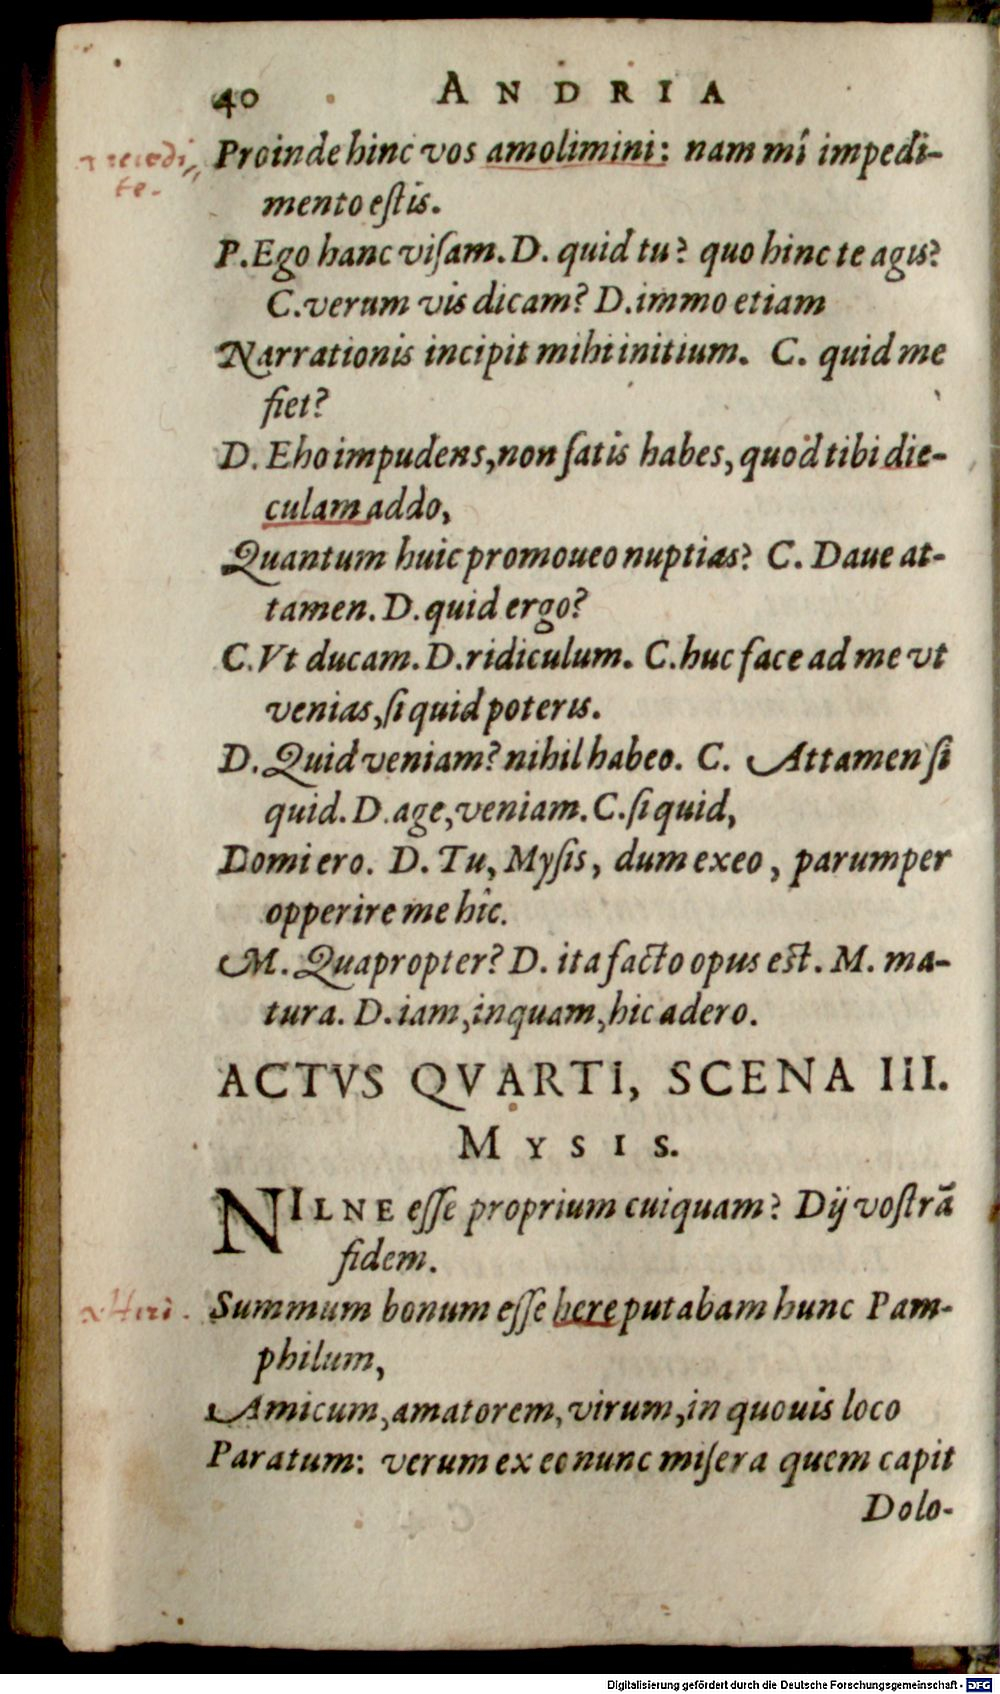 40 ANDRIA
Proinde hinc vos amolimini: nam mî impedi-
recedi
te.
mento eſtis.
P. Ego hanc viſam. D. quid tu? quo hinc te agis?
C. verum vis dicam? D. immo etiam
Narrationis incipit mihi initium. C. quid me
fiet?
D. Eho impudens, non ſatis habes, quòd tibi die-
culam addo,
Quantum huic promoueo nuptias? C. Daue at-
tamen. D. quid ergo?
C. Vt ducam. D. ridiculum. C. huc face ad me vt
venias, ſi quid poteris.
D. Quid veniam? nihil habeo. C. Attamen ſi
quid. D. age, veniam. C. ſi quid,
Domi ero. D. Tu, Myſis, dum exeo, parumper
opperire me hîc.
M. Quapropter? D. ita facto opus est. M. ma-
tura. D. iam, inquam, hic adero.
ACTVS QVARTI, SCENA III.
MYSIS.
NILNE eſſe proprium cuiquam? Dij voſtrã
fidem.
Heri. Summum bonum eſſe here putabam hunc Pam-
philum,
Amicum, amatorem, virum, in quouis loco
Paratum: verum ex eo nunc miſera quem capit
Dolo-
Digitalisierung gefördert durch die Deutsche Forschungsgemeinschaft - DFG